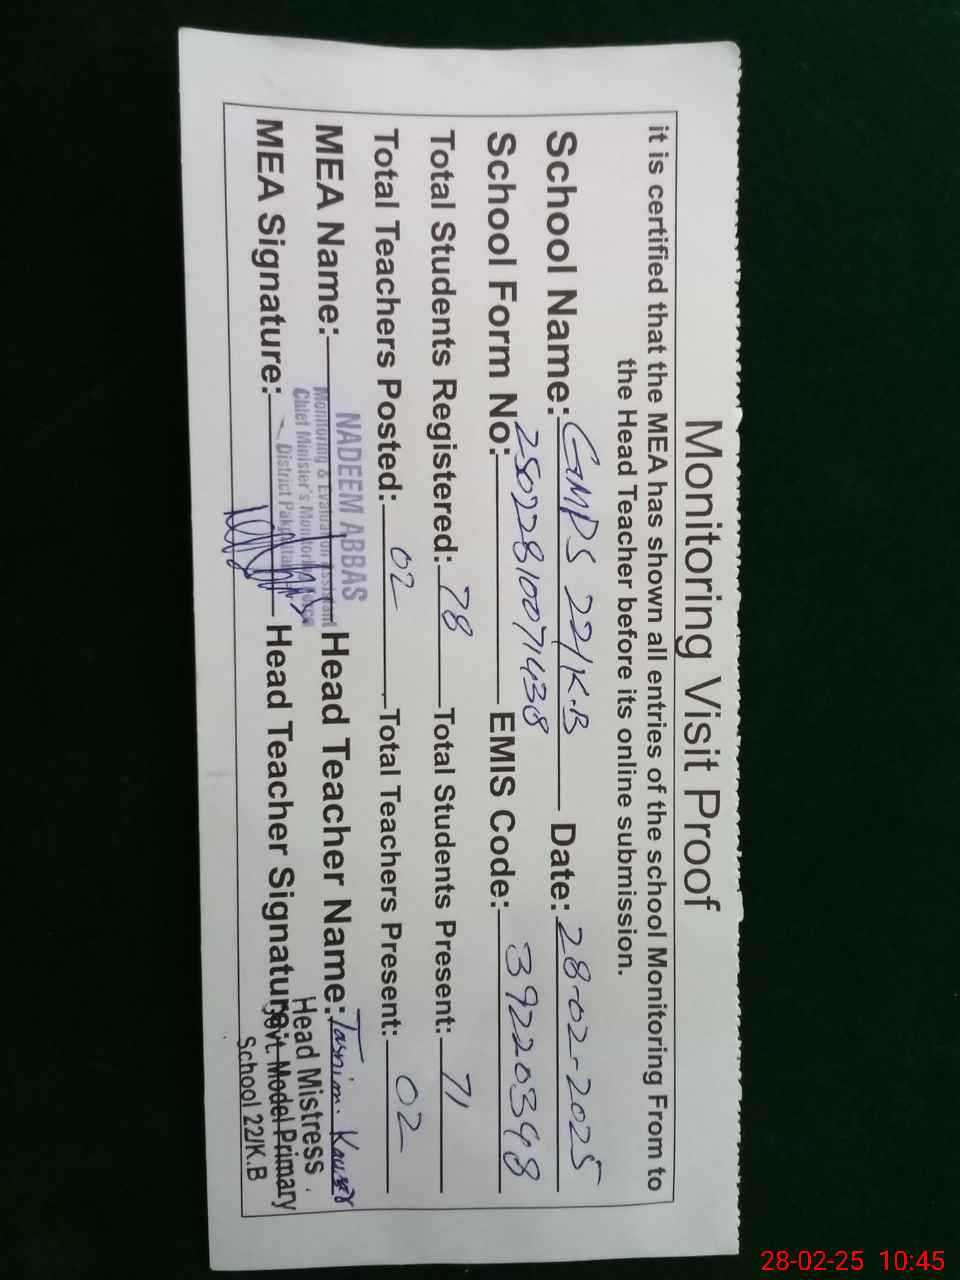 Monitoring Visit Proof
it is certified that the MEA has shown all entries of the school Monitoring From to
the Head Teacher before its online submission.
School Name: GMPS 22/K.B Date: 28-02-2025
School Form No: 25022810071438 EMIS Code: 39220398
Total Students Registered: 78 Total Students Present: 71
Total Teachers Posted: 02 Total Teachers Present: 02
MEA Name: Head Teacher Name: Tasnim Kausar
NADEEM ABBAS
Monitoring & Evaluation Assistant
Chief Minister's Monitoring Force
District Pakpattan
MEA Signature: Head Teacher Signature:
Head Mistress
Govt. Model Primary
School 22/K.B
28-02-25 10:45